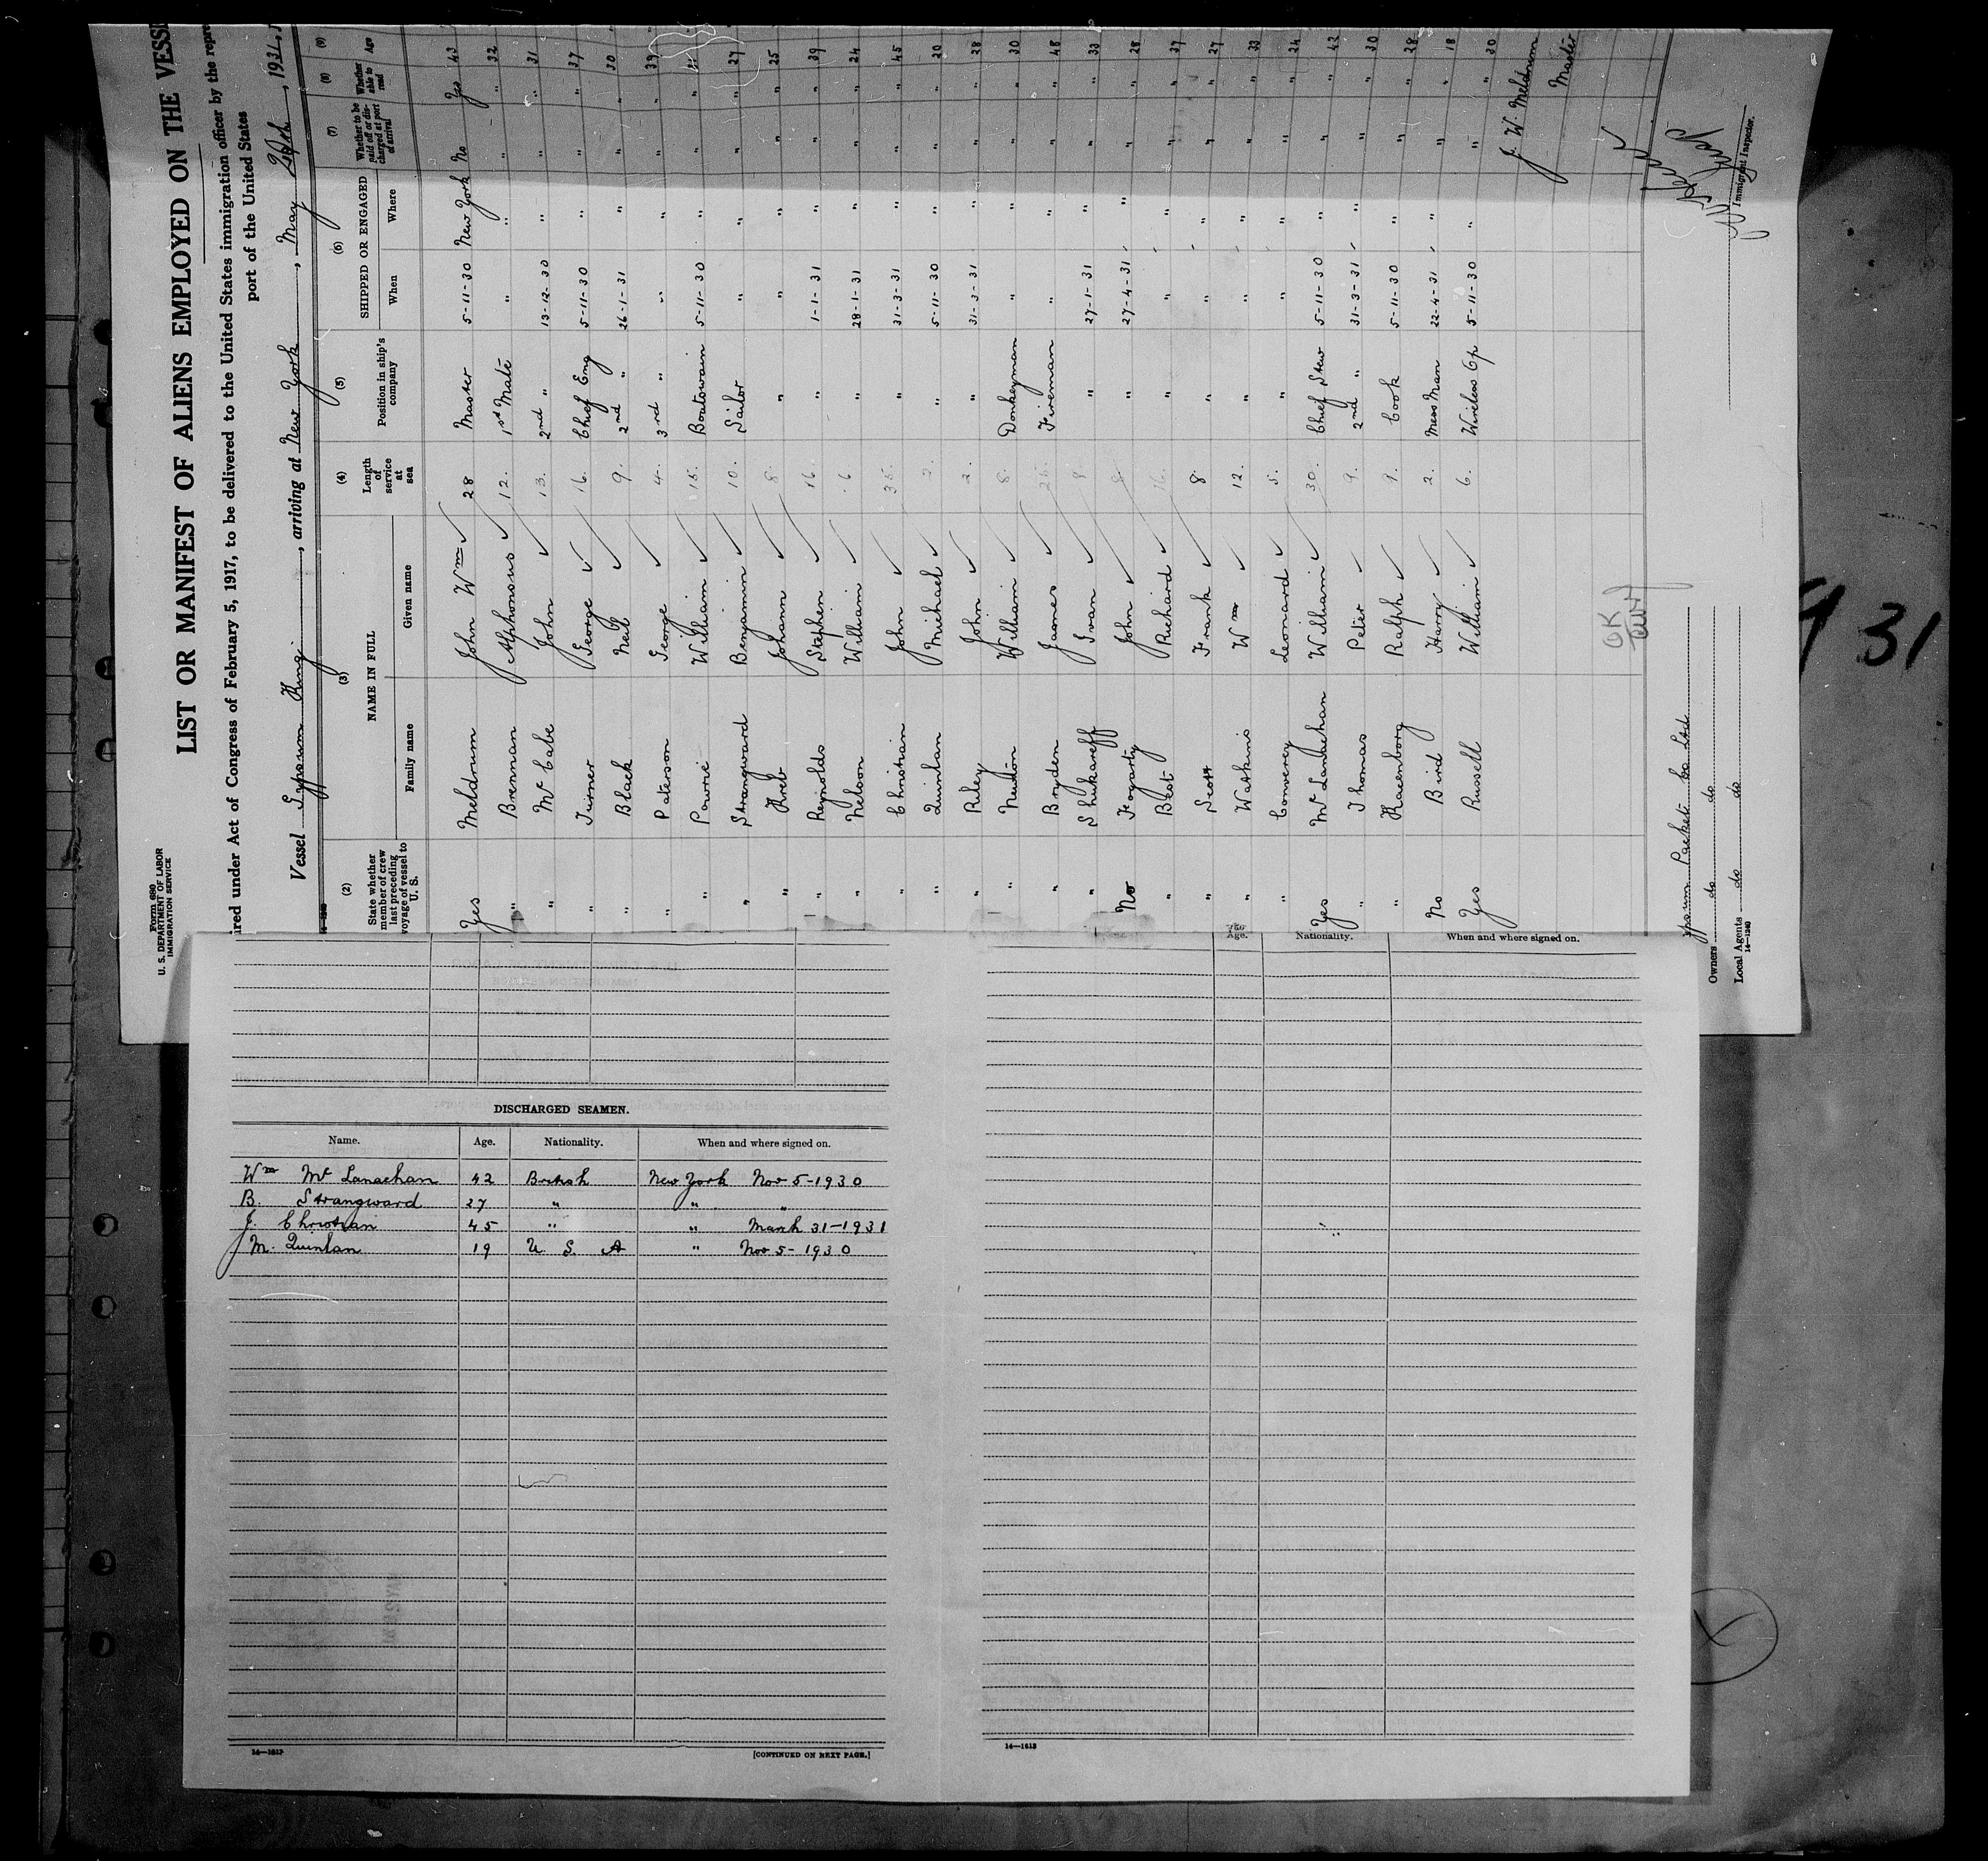 Form 680
U. S. DEPARTMENT OF LABOR
IMMIGRATION SERVICE
LIST OR MANIFEST OF ALIENS EMPLOYED ON THE VESS
ired under Act of Congress of February 5, 1917, to be delivered to the United States immigration officer by the repre
port of the United States
Vessel Gypsum King, arriving at New York, May, 1931,
(2) (3) (4) (5) (6) (7) (8) (9)
State whether member of crew last preceding voyage of vessel to U. S. NAME IN FULL Family name Given name Length of service at sea Position in ship's company SHIPPED OR ENGAGED When Where Whether to be paid off or discharged at port of arrival Whether able to read Age
Yes Meldrum John Wm 28 Master 5-11-30 New York No Yes 43
" Brennan Alphonsus 12. 1st Mate " " " " 32
" McCabe John 13. 2nd " 13-12-30 " " " 31
" Turner George 16. Chief Eng 5-11-30 " " " 37
" Black Neil 9. 2nd " 26-1-31 " " " 30
" Paterson George 4. 3rd " " " " " 39
" Powrie William 15. Boatswain 5-11-30 " " "
" Strangward Benjamin 10. Sailor " " " " 27
" Kreb Johann 8. " " " " " 25
" Reynolds Stephen 16. " 1-1-31 " " " 39
" Nelson William 6 " 28-1-31 " " " 24
" Christian John 35. " 31-3-31 " " " 45
" Quinlan Michael " 5-11-30 " " " 20
" Riley John 2. " 31-3-31 " " " 28
" Neilson William 8. Donkeyman " " " " 30
" Bryden James 25. Fireman " " " " 48
" Shukareff Ivan 8 " 27-1-31 " " " 33
No Fogarty John 8 " 27-4-31 " " " 28
" Best Richard 16. " " " " " 37
" Scott Frank 8. " " " " " 27
" Watkins Wm 12. " " " " " 33
" Convery Leonard 5. " " " " " 24
Yes McLanachan William 30. Chief Stew 5-11-30 " " " 42
" Thomas Peter 9. 2nd " 31-3-31 " " " 30
" Kaenborg Ralph 9. Cook 5-11-30 " " " 28
No Bird Harry 2. Mess Man 22-4-31 " " " 18
Yes Russell William 6. Wireless Op 5-11-30 " " " 30
J. W. Meldrum
Master
OK
Immigrant Inspector.
ypsum Packet Co Ltd.
Owners do do
Local Agents do do
14—1240
31
Age. Nationality. When and where signed on.
DISCHARGED SEAMEN.
Name. Age. Nationality. When and where signed on.
Wm McLanachan 42 British New York Nov 5-1930
B. Strangward 27 " " "
J. Christian 45 " " March 31-1931
M. Quinlan 19 U. S. A " Nov 5-1930
14—1613
[CONTINUED ON NEXT PAGE.]
14—1613